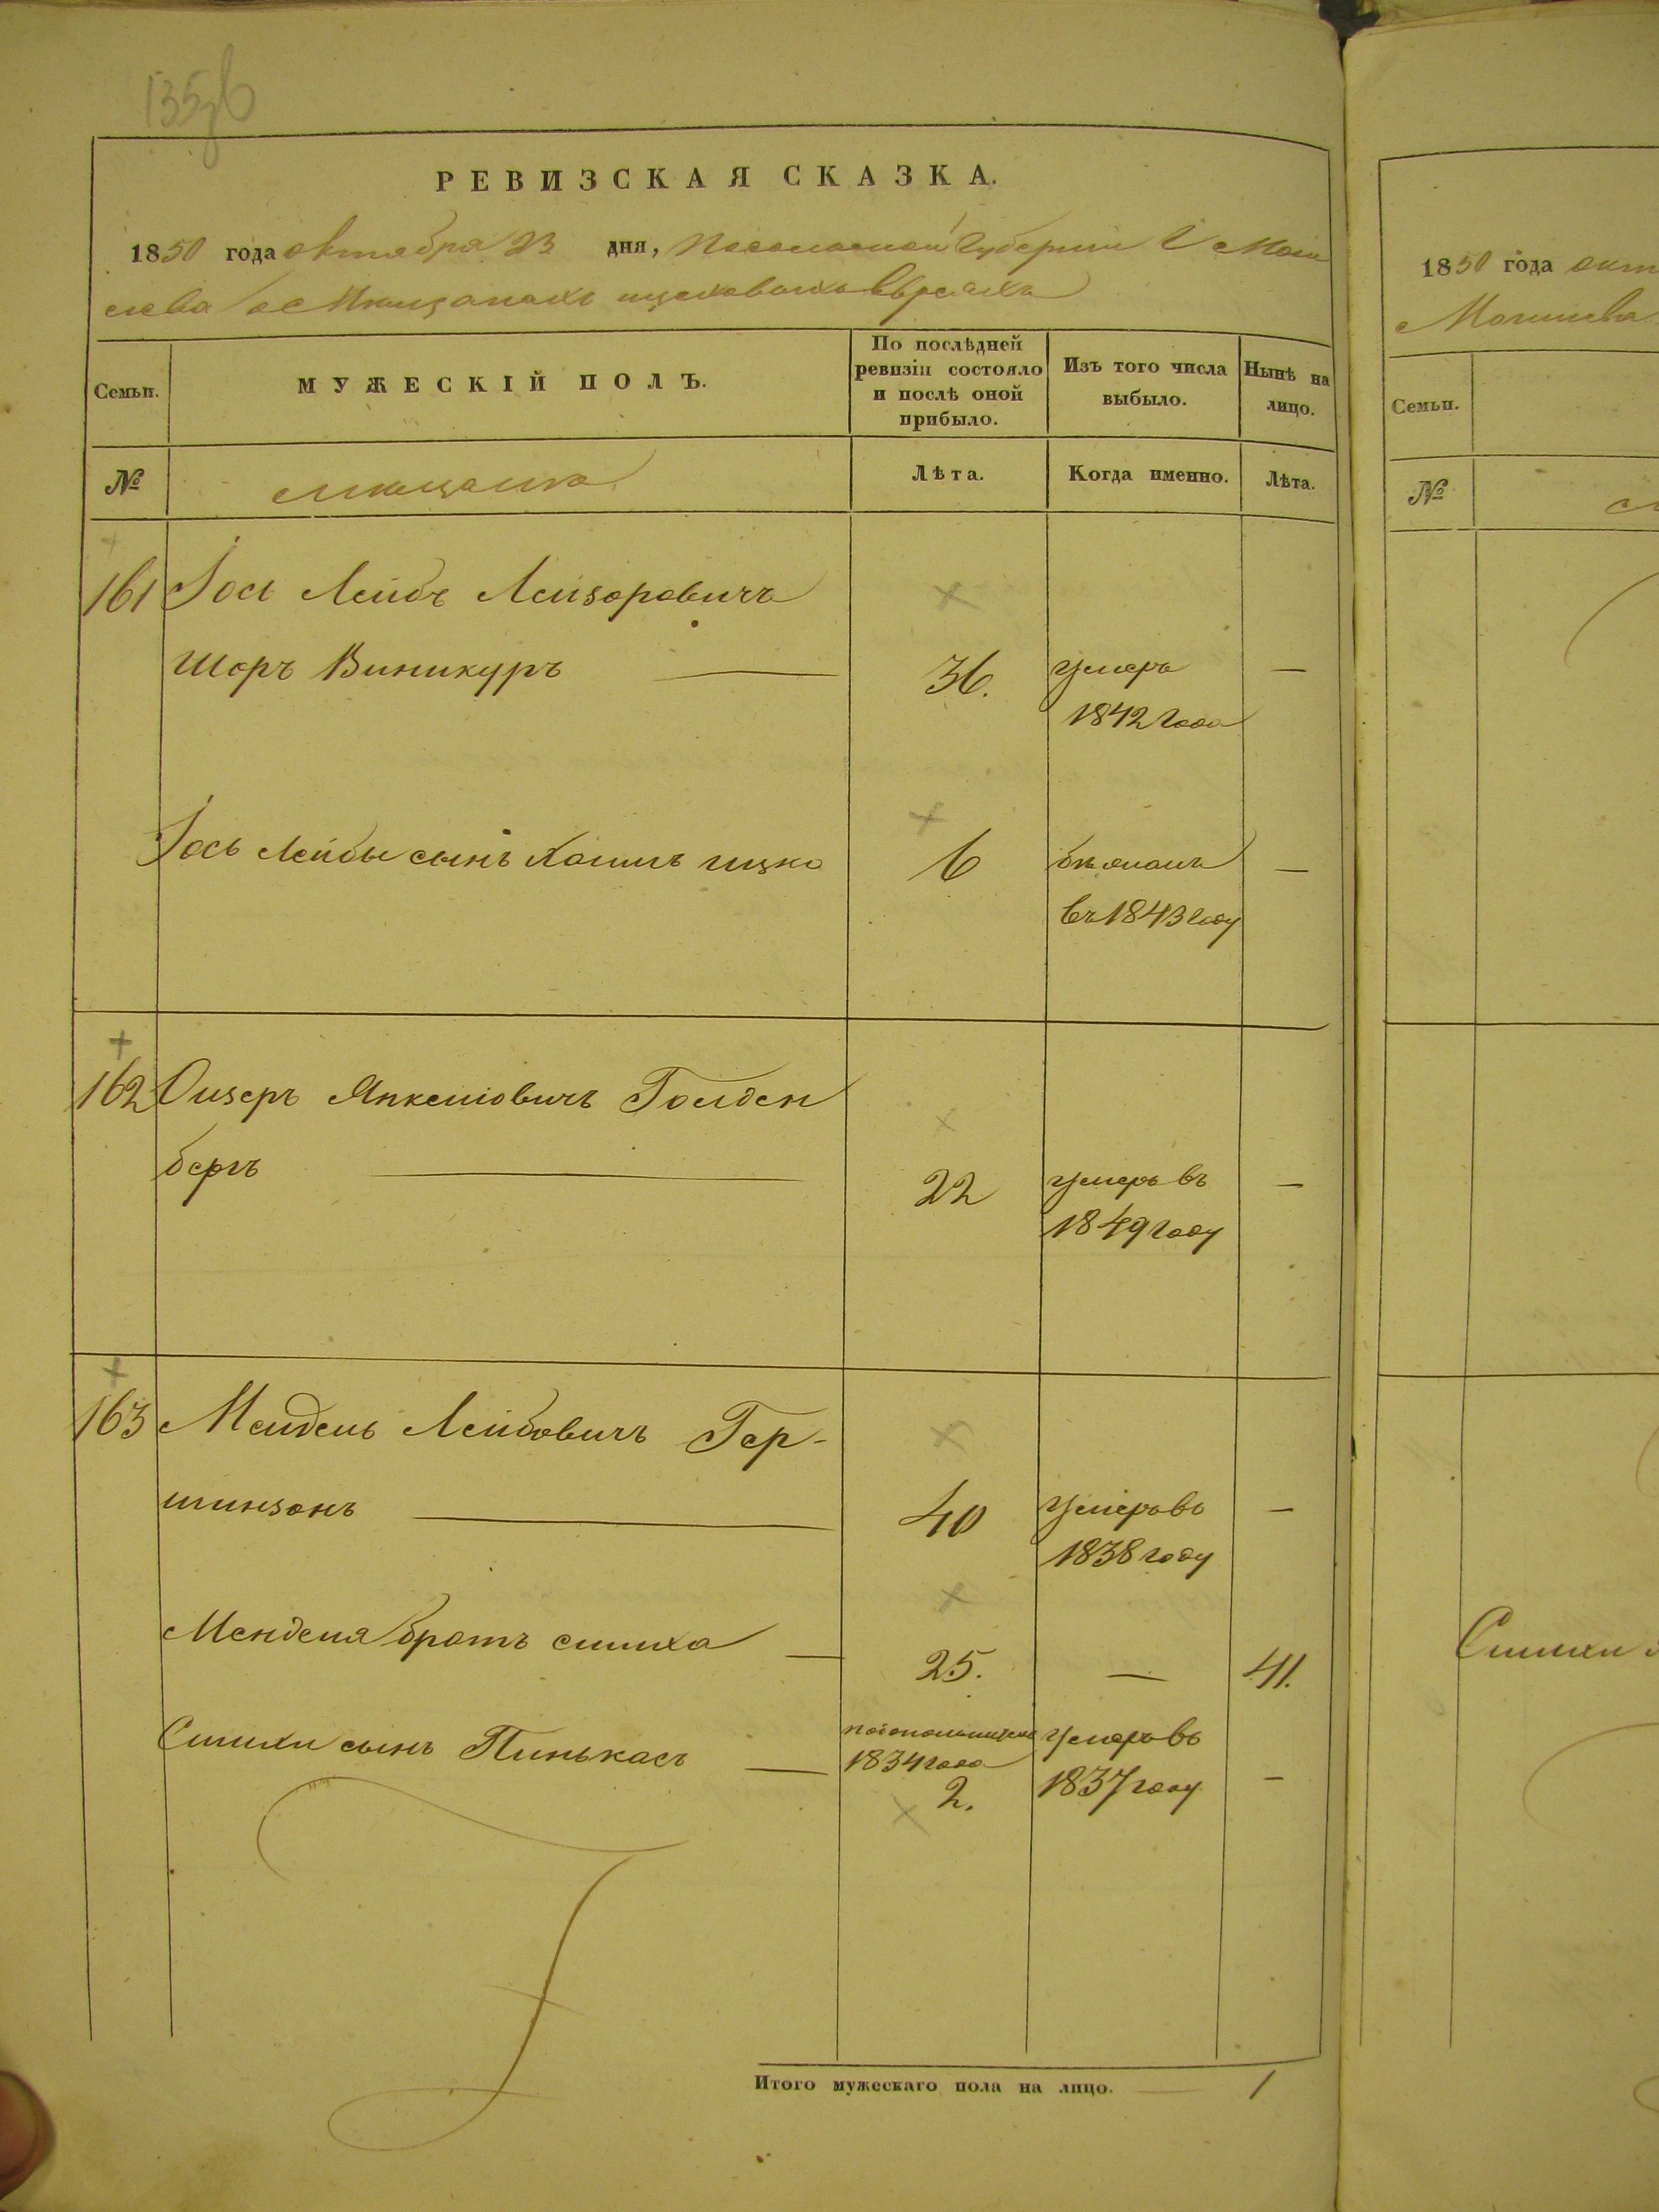 135об
РЕВИЗСКАЯ СКАЗКА.
1850 года октября 23 дня, Подольской Губерніи Г. Моги
лева о Мѣщанахъ Евреяхъ
Семьи.
МУЖЕСКІЙ ПОЛЪ.
По послѣдней ревизіи состояло и послѣ оной прибыло.
Изъ того числа выбыло.
Нынѣ на лицо.
№
мѣщане
Лѣта.
Когда именно.
Лѣта.
161 Іось Лейбъ Лейзоровичъ
Шоръ Виникуръ — 36. умеръ —
1842 года
Іось Лейбы сынъ Хаимъ ицко 6 бѣжалъ —
въ 1843 году
162 Ойзеръ Янкелiовичъ Голден
бергъ — 22 умеръ въ —
1849 году
163 Мендель Лейбовичъ Гер-
шинзонъ — 40 умеръ въ —
1838 году
Менделя братъ симха — 25. — 41.
Симхи сынъ Пинькасъ — 1834 года умеръ въ
2. 1837 году —
Итого мужескаго пола на лицо. — 1
1850 года окт
Могилева
Семьи.
№
Симхи